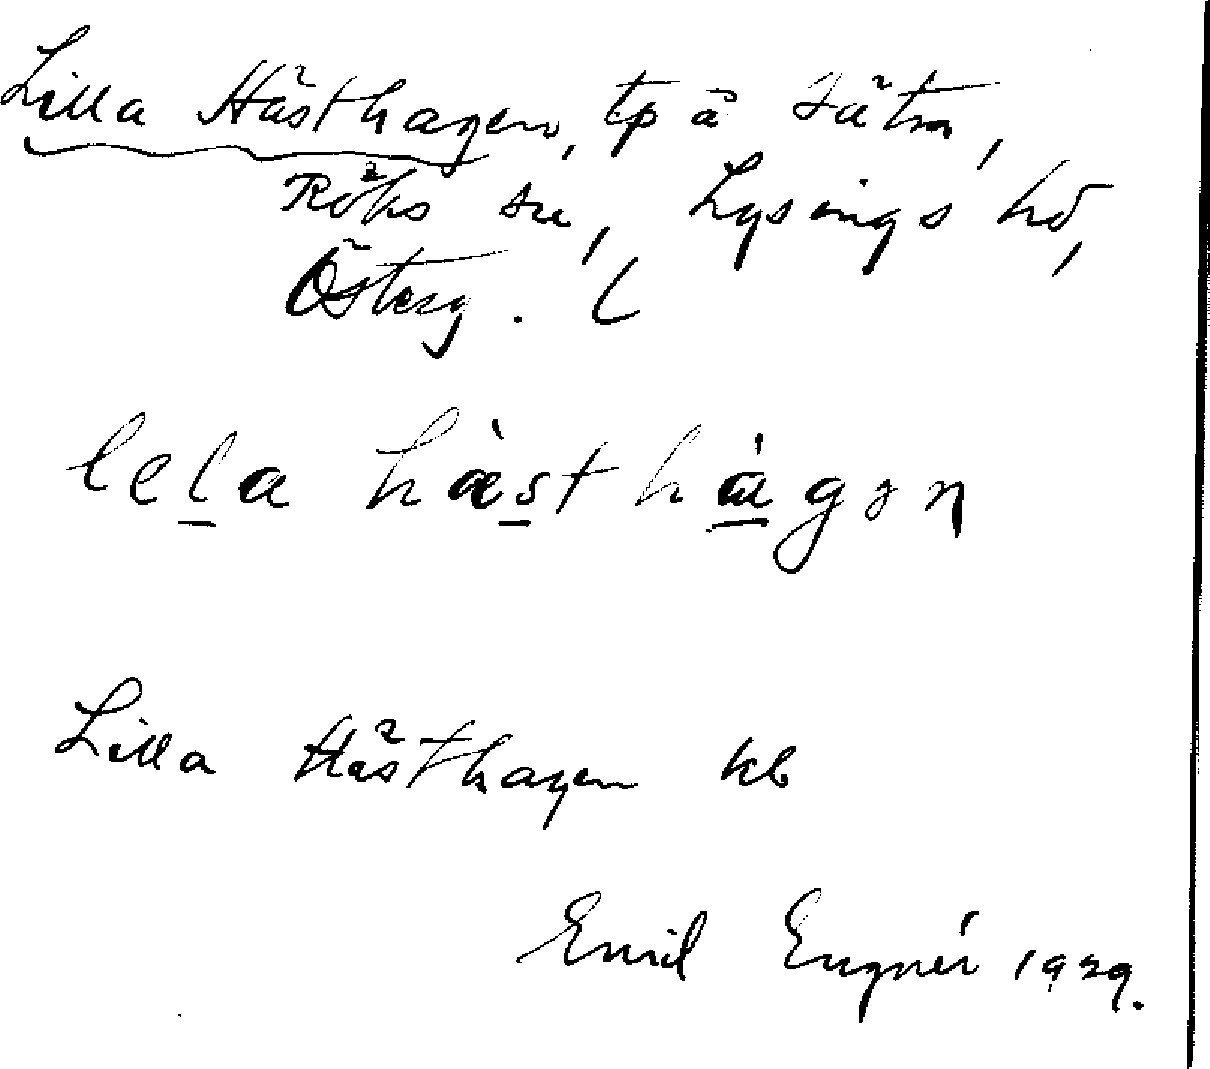 Lilla Hästhagen, tp å Sätra,
Röks sn, Lysings hd,
Österg. l
lela hæ̀sthàgən
Lilla Hästhagen kb
Emil Engnér 1929.